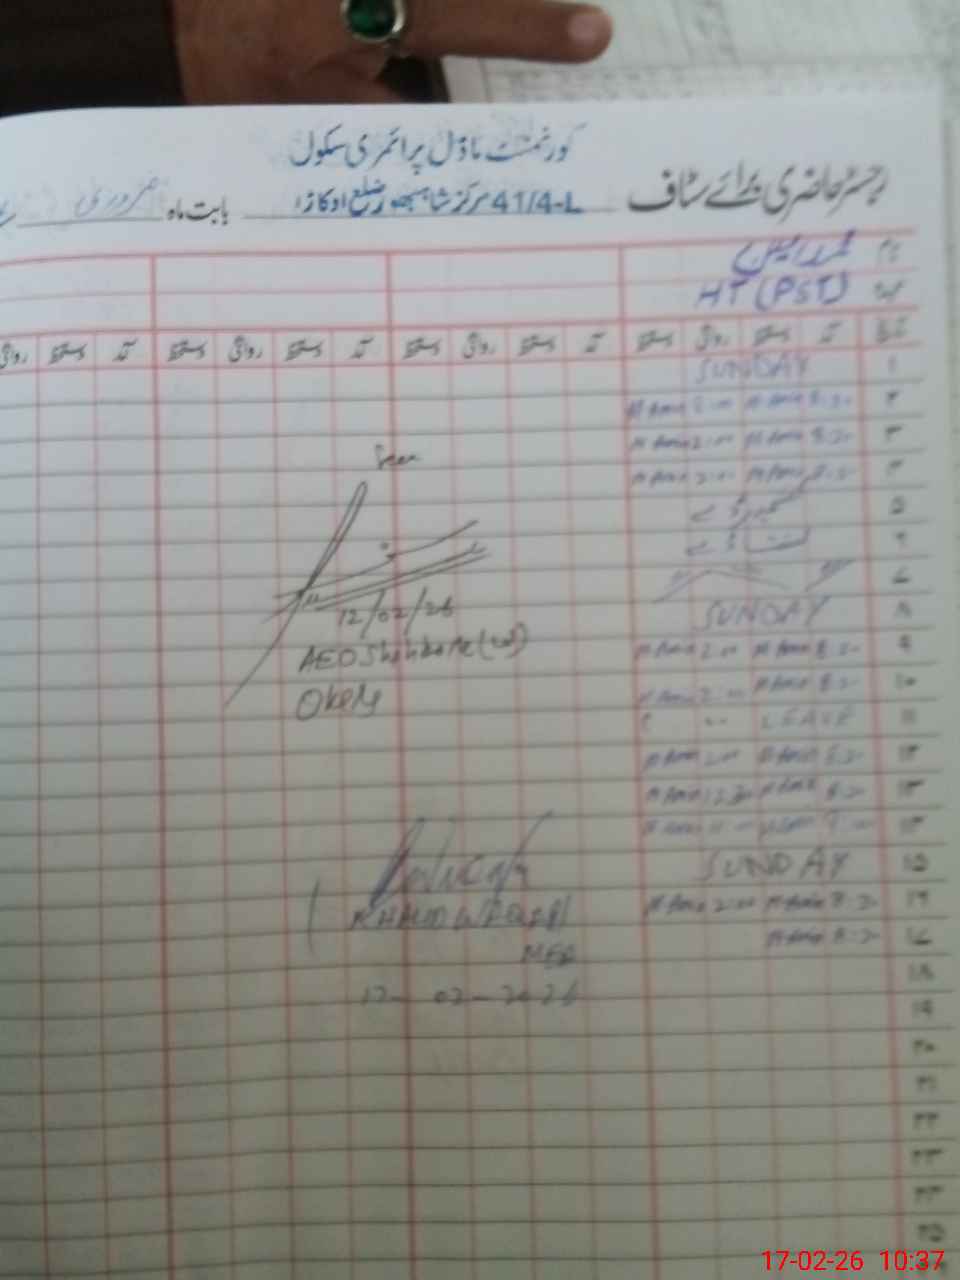 گورنمنٹ ماڈل پرائمری سکول
رجسٹر حاضری برائے سٹاف 41/4-L مرکز شاہبھور ضلع اوکاڑا بابت ماہ فروری
نام محمد امین
عہدہ HT (PST)
تاریخ آمد دستخط روانگی دستخط آمد دستخط روانگی دستخط آمد دستخط روانگی دستخط آمد دستخط روانگی
۱ SUNDAY
۲ M Amin 8:20 M Amin 2:00
۳ M Amin 8:20 M Amin 2:00
۴ M Amin 8:20 M Amin 2:00
۵
۶
۷
۸ SUNDAY
۹ M Amin 8:20 M Amin 2:00
۱۰ M Amin 8:20 M Amin 2:00
۱۱ LEAVE
۱۲ M Amin 8:20 M Amin 2:00
۱۳ M Amin 8:20 M Amin 12:30
۱۴ M Amin
۱۵ SUNDAY
۱۶ M Amin 8:20 M Amin 2:00
۱۷ M Amin 8:20
۱۸
۱۹
۲۰
۲۱
۲۲
۲۳
۲۴
۲۵
Seen
12/02/26
AEO
Okara
MEA
17-02-2026
17-02-26 10:37